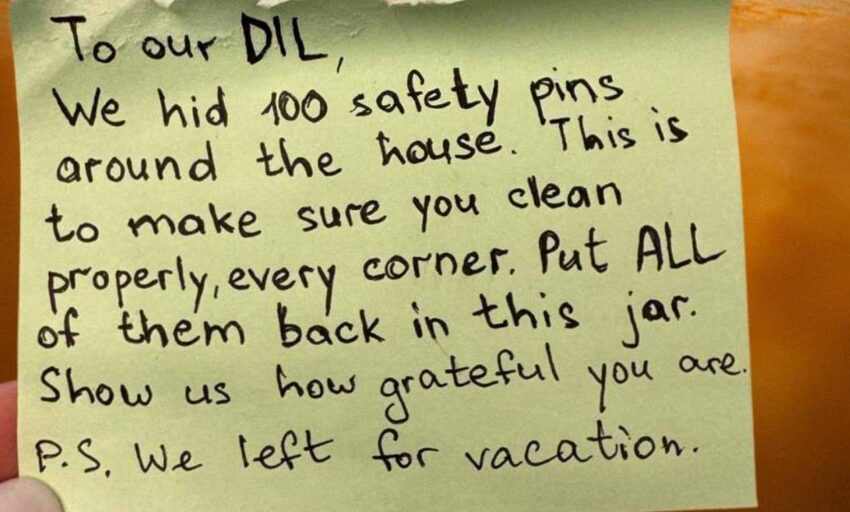 To our DIL,
We hid 100 safety pins
around the house. This is
to make sure you clean
properly, every corner. Put ALL
of them back in this jar.
Show us how grateful you are.
P.S. We left for vacation.